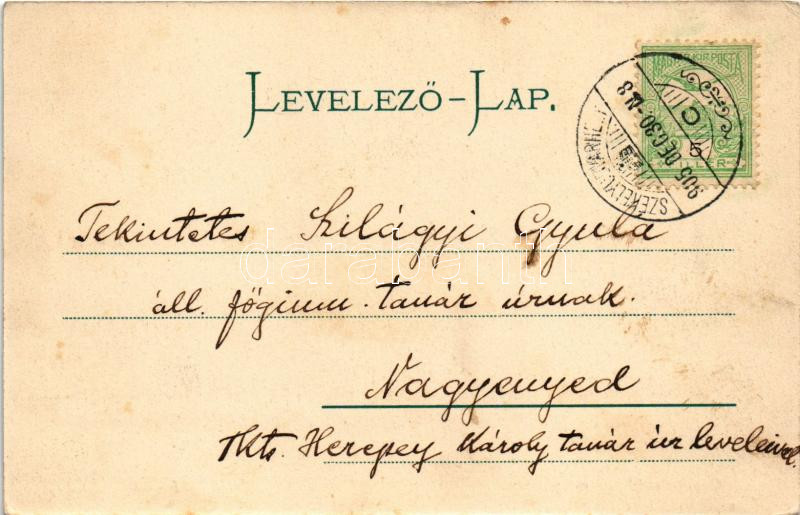 LEVELEZŐ-LAP.
MAGY. KIR. POSTA
5
905 DEC. 30
C
Tekintetes Szilágyi Gyula
áll. főgimn. tanár úrnak.
Nagyenyed
Tkts. Herepey Károly tanár úr leveleivel.
darabanth